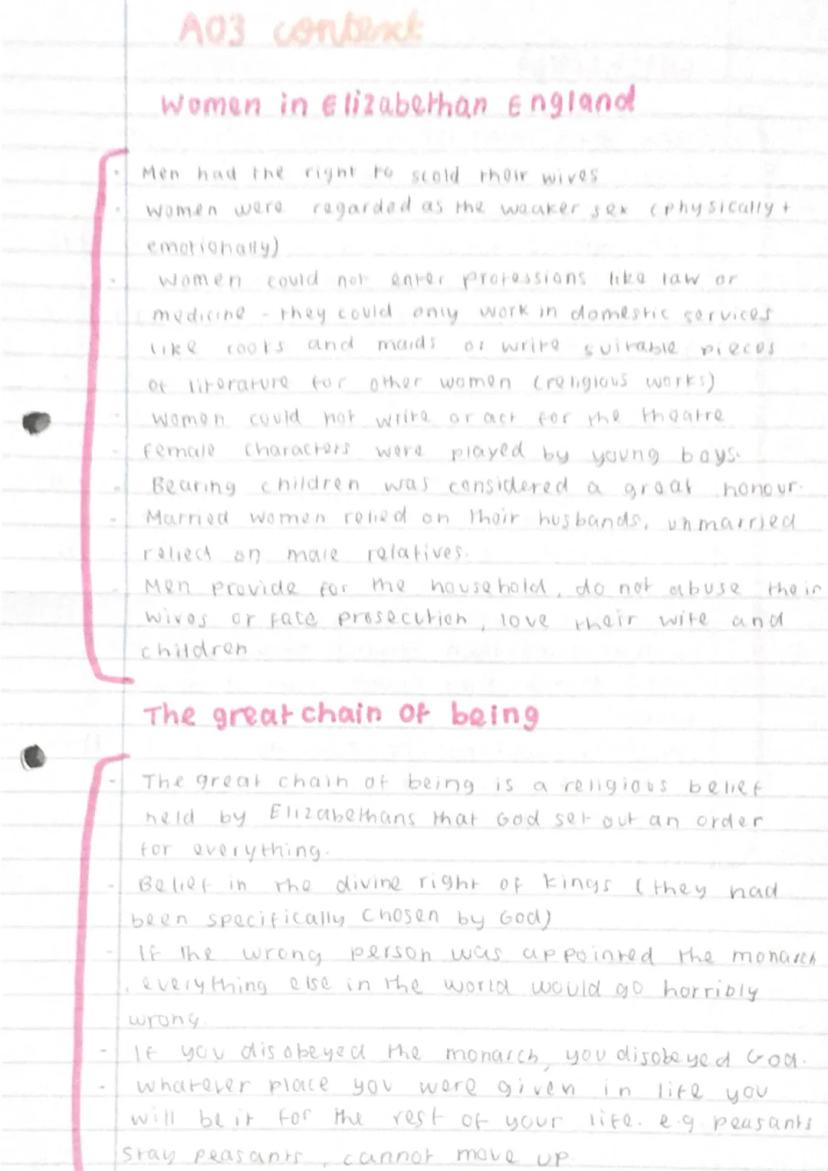 AO3 context
Women in Elizabethan England
- Men had the right to scold their wives
- Women were regarded as the weaker sex (physically +
emotionally)
- Women could not enter professions like law or
medicine - they could only work in domestic services
like cooks and maids or write suitable pieces
of literature for other women (religious works)
- Women could not write or act for the theatre
- Female characters were played by young boys.
- Bearing children was considered a great honour.
- Married women relied on their husbands, unmarried
relied on male relatives.
- Men provide for the household, do not abuse their
wives or face prosecution, love their wife and
children
The great chain of being
- The great chain of being is a religious belief
held by Elizabethans that God set out an order
for everything.
- Belief in the divine right of kings (they had
been specifically chosen by God)
- If the wrong person was appointed the monarch
, everything else in the world would go horribly
wrong.
- If you disobeyed the monarch, you disobeyed God.
- Whatever place you were given in life you
will be it for the rest of your life. e.g peasants
stay peasants, cannot move up